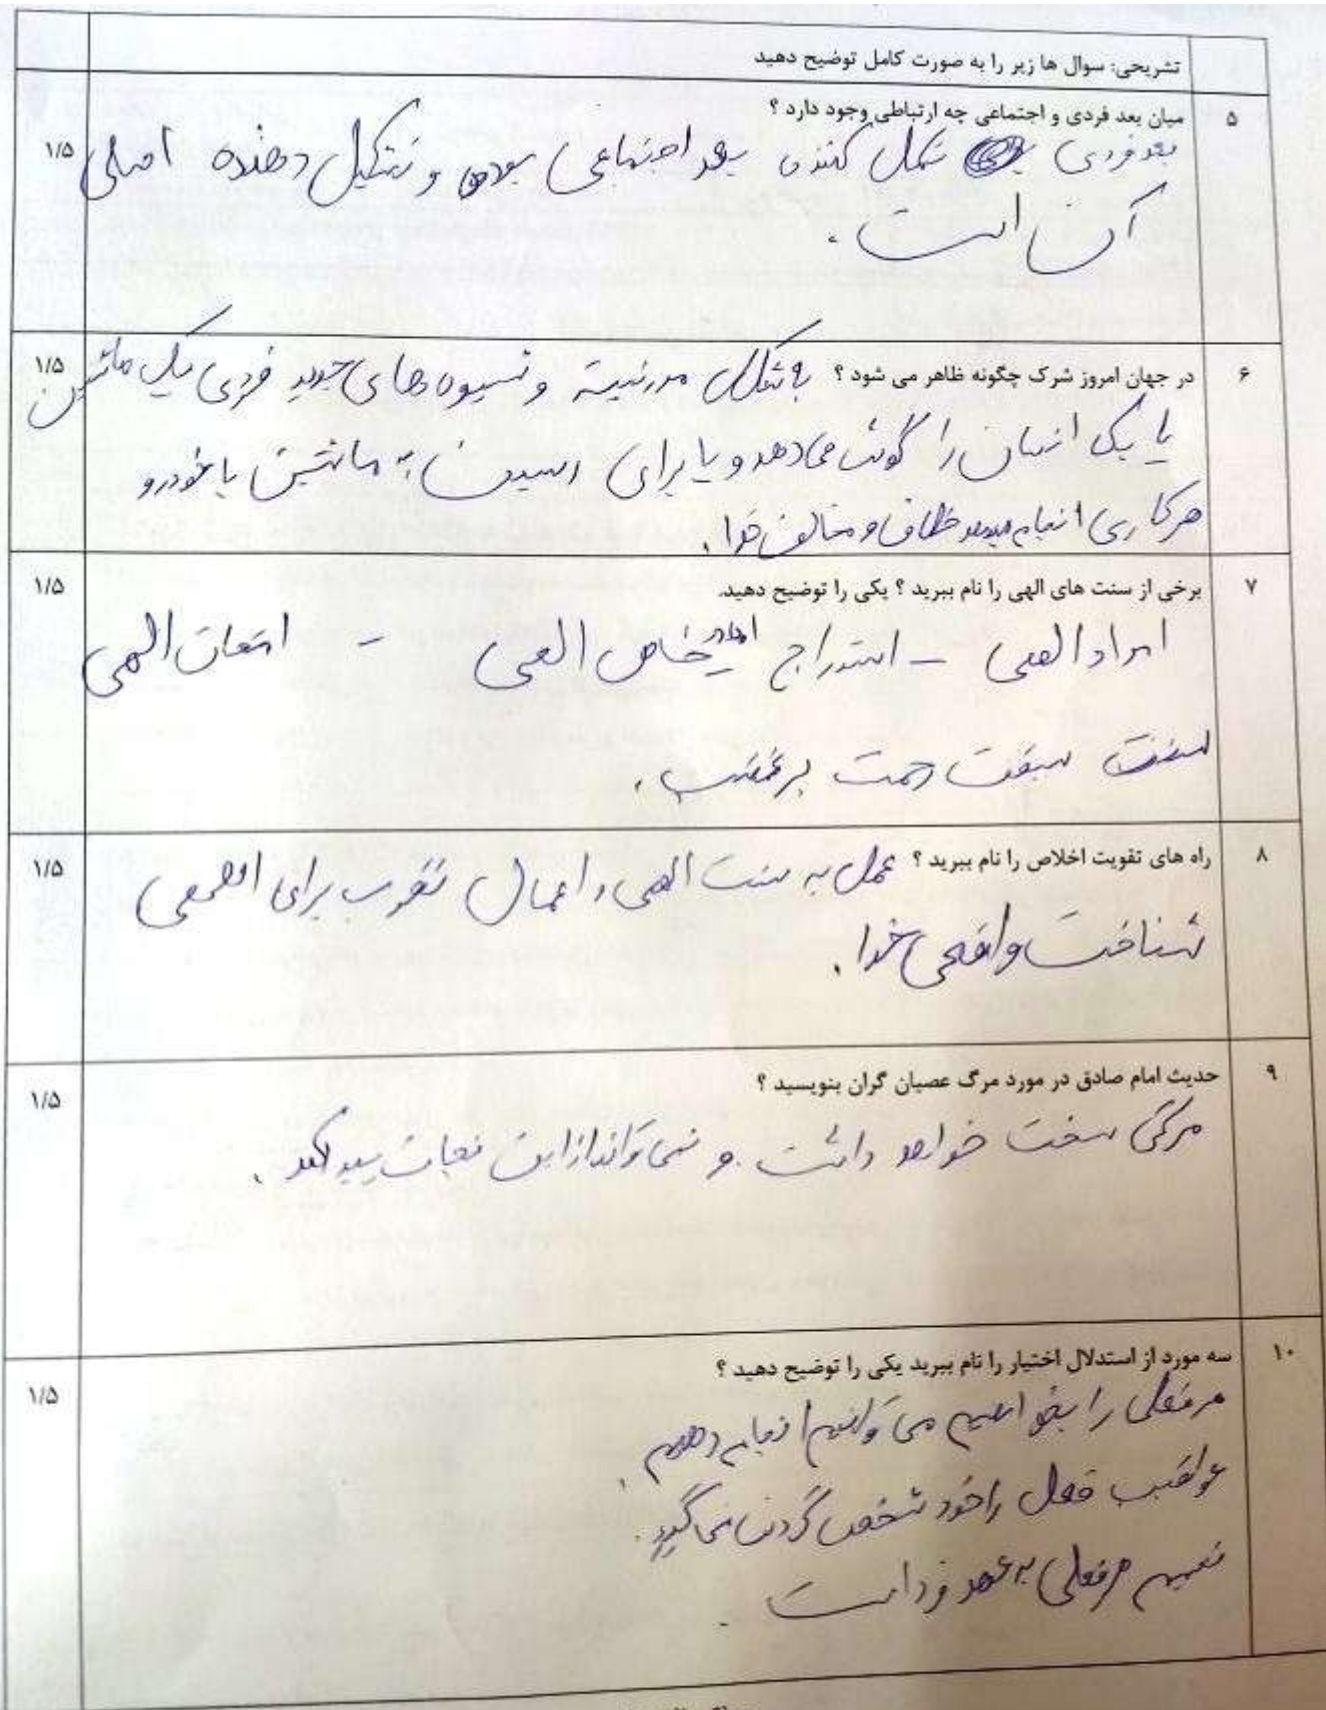 تشریحی: سوال ها زیر را به صورت کامل توضیح دهید
۵ میان بعد فردی و اجتماعی چه ارتباطی وجود دارد ؟ ۱/۵
بعد فردی تکمیل کننده بعد اجتماعی بوده و تشکیل دهنده اصلی
آن است .
۶ در جهان امروز شرک چگونه ظاهر می شود ؟ به شکل مدرنیته و شیوه های جدید فردی یک ماشین ۱/۵
یا یک انسان را گوش می دهد و یا برای رسیدن به ماشین یا خودرو
هر کاری انجام میدهد خلاف و مخالف خدا .
۷ برخی از سنت های الهی را نام ببرید ؟ یکی را توضیح دهید. ۱/۵
امداد الهی – استدراج امداد خاص الهی – امتحان الهی
سنت سبقت رحمت بر غضب .
۸ راه های تقویت اخلاص را نام ببرید ؟ عمل به سنت الهی ، اعمال تقرب برای ۱/۵
شناخت واقعی خدا .
۹ حدیث امام صادق در مورد مرگ عصیان گران بنویسید ؟ ۱/۵
مرگی سخت خواهد داشت و نمی تواند از این نجات پیدا کند .
۱۰ سه مورد از استدلال اختیار را نام ببرید یکی را توضیح دهید ؟ ۱/۵
هر فعلی را بخواهیم می توانیم انجام دهیم .
عواقب فعل را خود شخص گردن می گیرد .
تصمیم هر فعلی به عهد فرد است .